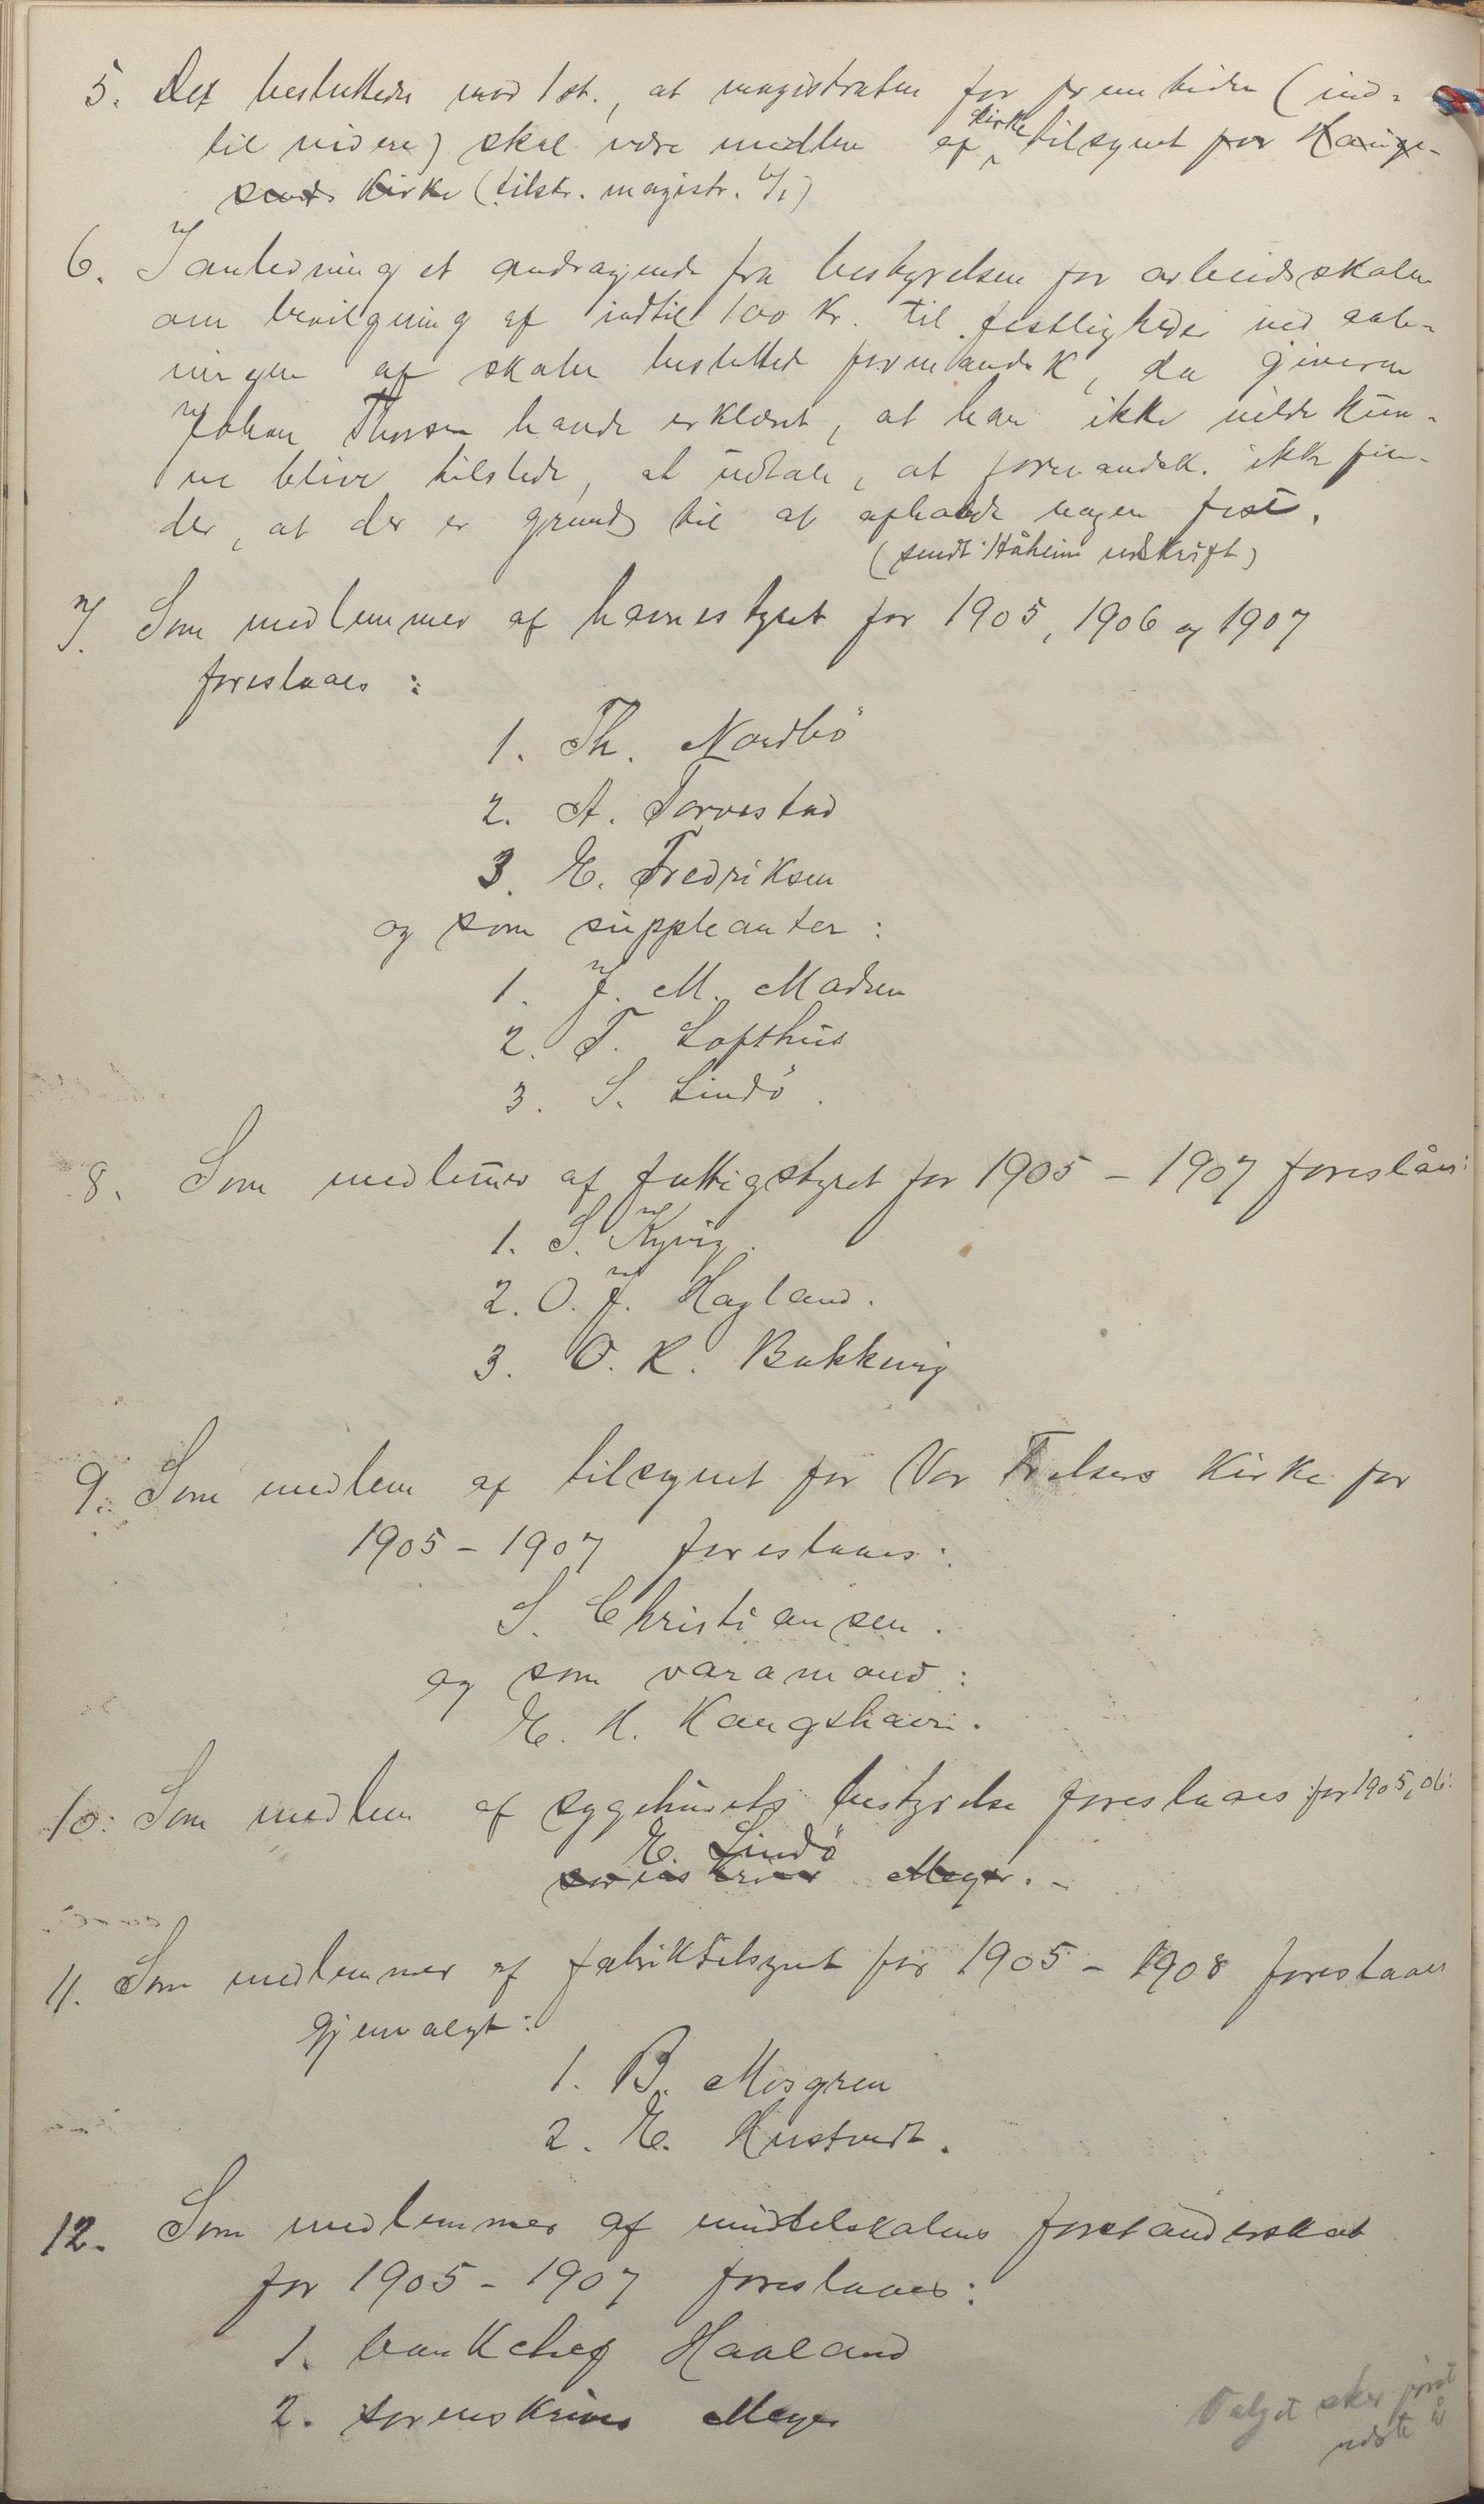 5. Det besluttedes mod 1 st., at magistraten for fremtiden (ind-
til videre) skal være medlem af kirketilsynet for Hauge-
sunds kirke (tilskr. magistr.
6. I anledning et andragende fra bestyrelsen for arbeidsskolen
om bevilgning af indtil 100 kr. til festligheder ved aab-
ningen af skolen besluttede formandsk, da giveren
Johan Thorsen havde erklæret, at han ikke vilde kun-
ne blive tilstede, at udtale, at formandsk. ikke fin-
der, at der er grund til at afholde nogen fest.
(sendt Håheim udskrift)
7. Som medlemmer af havnestyret for 1905, 1906 og 1907
foreslaaes :
1. Th. Nordbö
2. A. Torvestad
3. E. Fredriksen
og som suppleanter :
1. J. M. Madsen
2. T. Lofthus
3. S. Lindö.
8. Som medlemer af fattigstyret for 1905 - 1907 foreslåes:
1. S. Kyvig.
2. O. J. Hagland.
3. O. K. Bakkevig
9. Som medlem af tilsynet for Vor Frelsers kirke for
1905 - 1907 foreslaaes :
S. Christiansen.
og som varamand :
E. H. Kongshavn.
10. Som medlem af sygehusets bestyrelse foreslaaes for 1905, 06:
E. Lindö
sorenskriver Meyer. -
11. Som medlemmer af fabriktilsynet for 1905 - 1908 foreslaaes
gjenvalgt :
1. B. Mosgren
2. E. Hustvedt.
12. Som medlemmer af middelskolens forstanderskab
for 1905 - 1907 foreslaaes :
1. bankchef Haaland
2. sorenskriver Meyer
Valget sker först
næste år